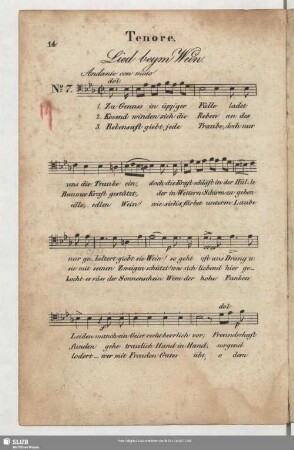 14
Tenore.
Lied beym Wein.
Andante con moto
dol:
No. 7.
1. Zu Genuss in üpp'ger Fülle ladet
2. Kosend winden sich die Reben an des
3. Rebensaft giebt jede Traube, doch nur
uns die Traube ein, doch die Kraft schläft in der Hül-le
Baumes Kraft gestützt, der in Wettern Schirm zu geben
edle, edlen Wein! wie sich's färbet unterm Laube
nur ge-keltert giebt sie Wein! so geht oft aus Drang u
sie mit seinen Zweigen schützt! wie sich liebend hier ge-
kocht er süss der Sonnenschein Wem der hohe Funken
dol:
Leiden manch ein Geist verklärt hervor; Freundschaft
funden gehe traulich Hand in Hand, sorgend
lodert _ wer mit Freuden Gutes übt, o dem
SLUB